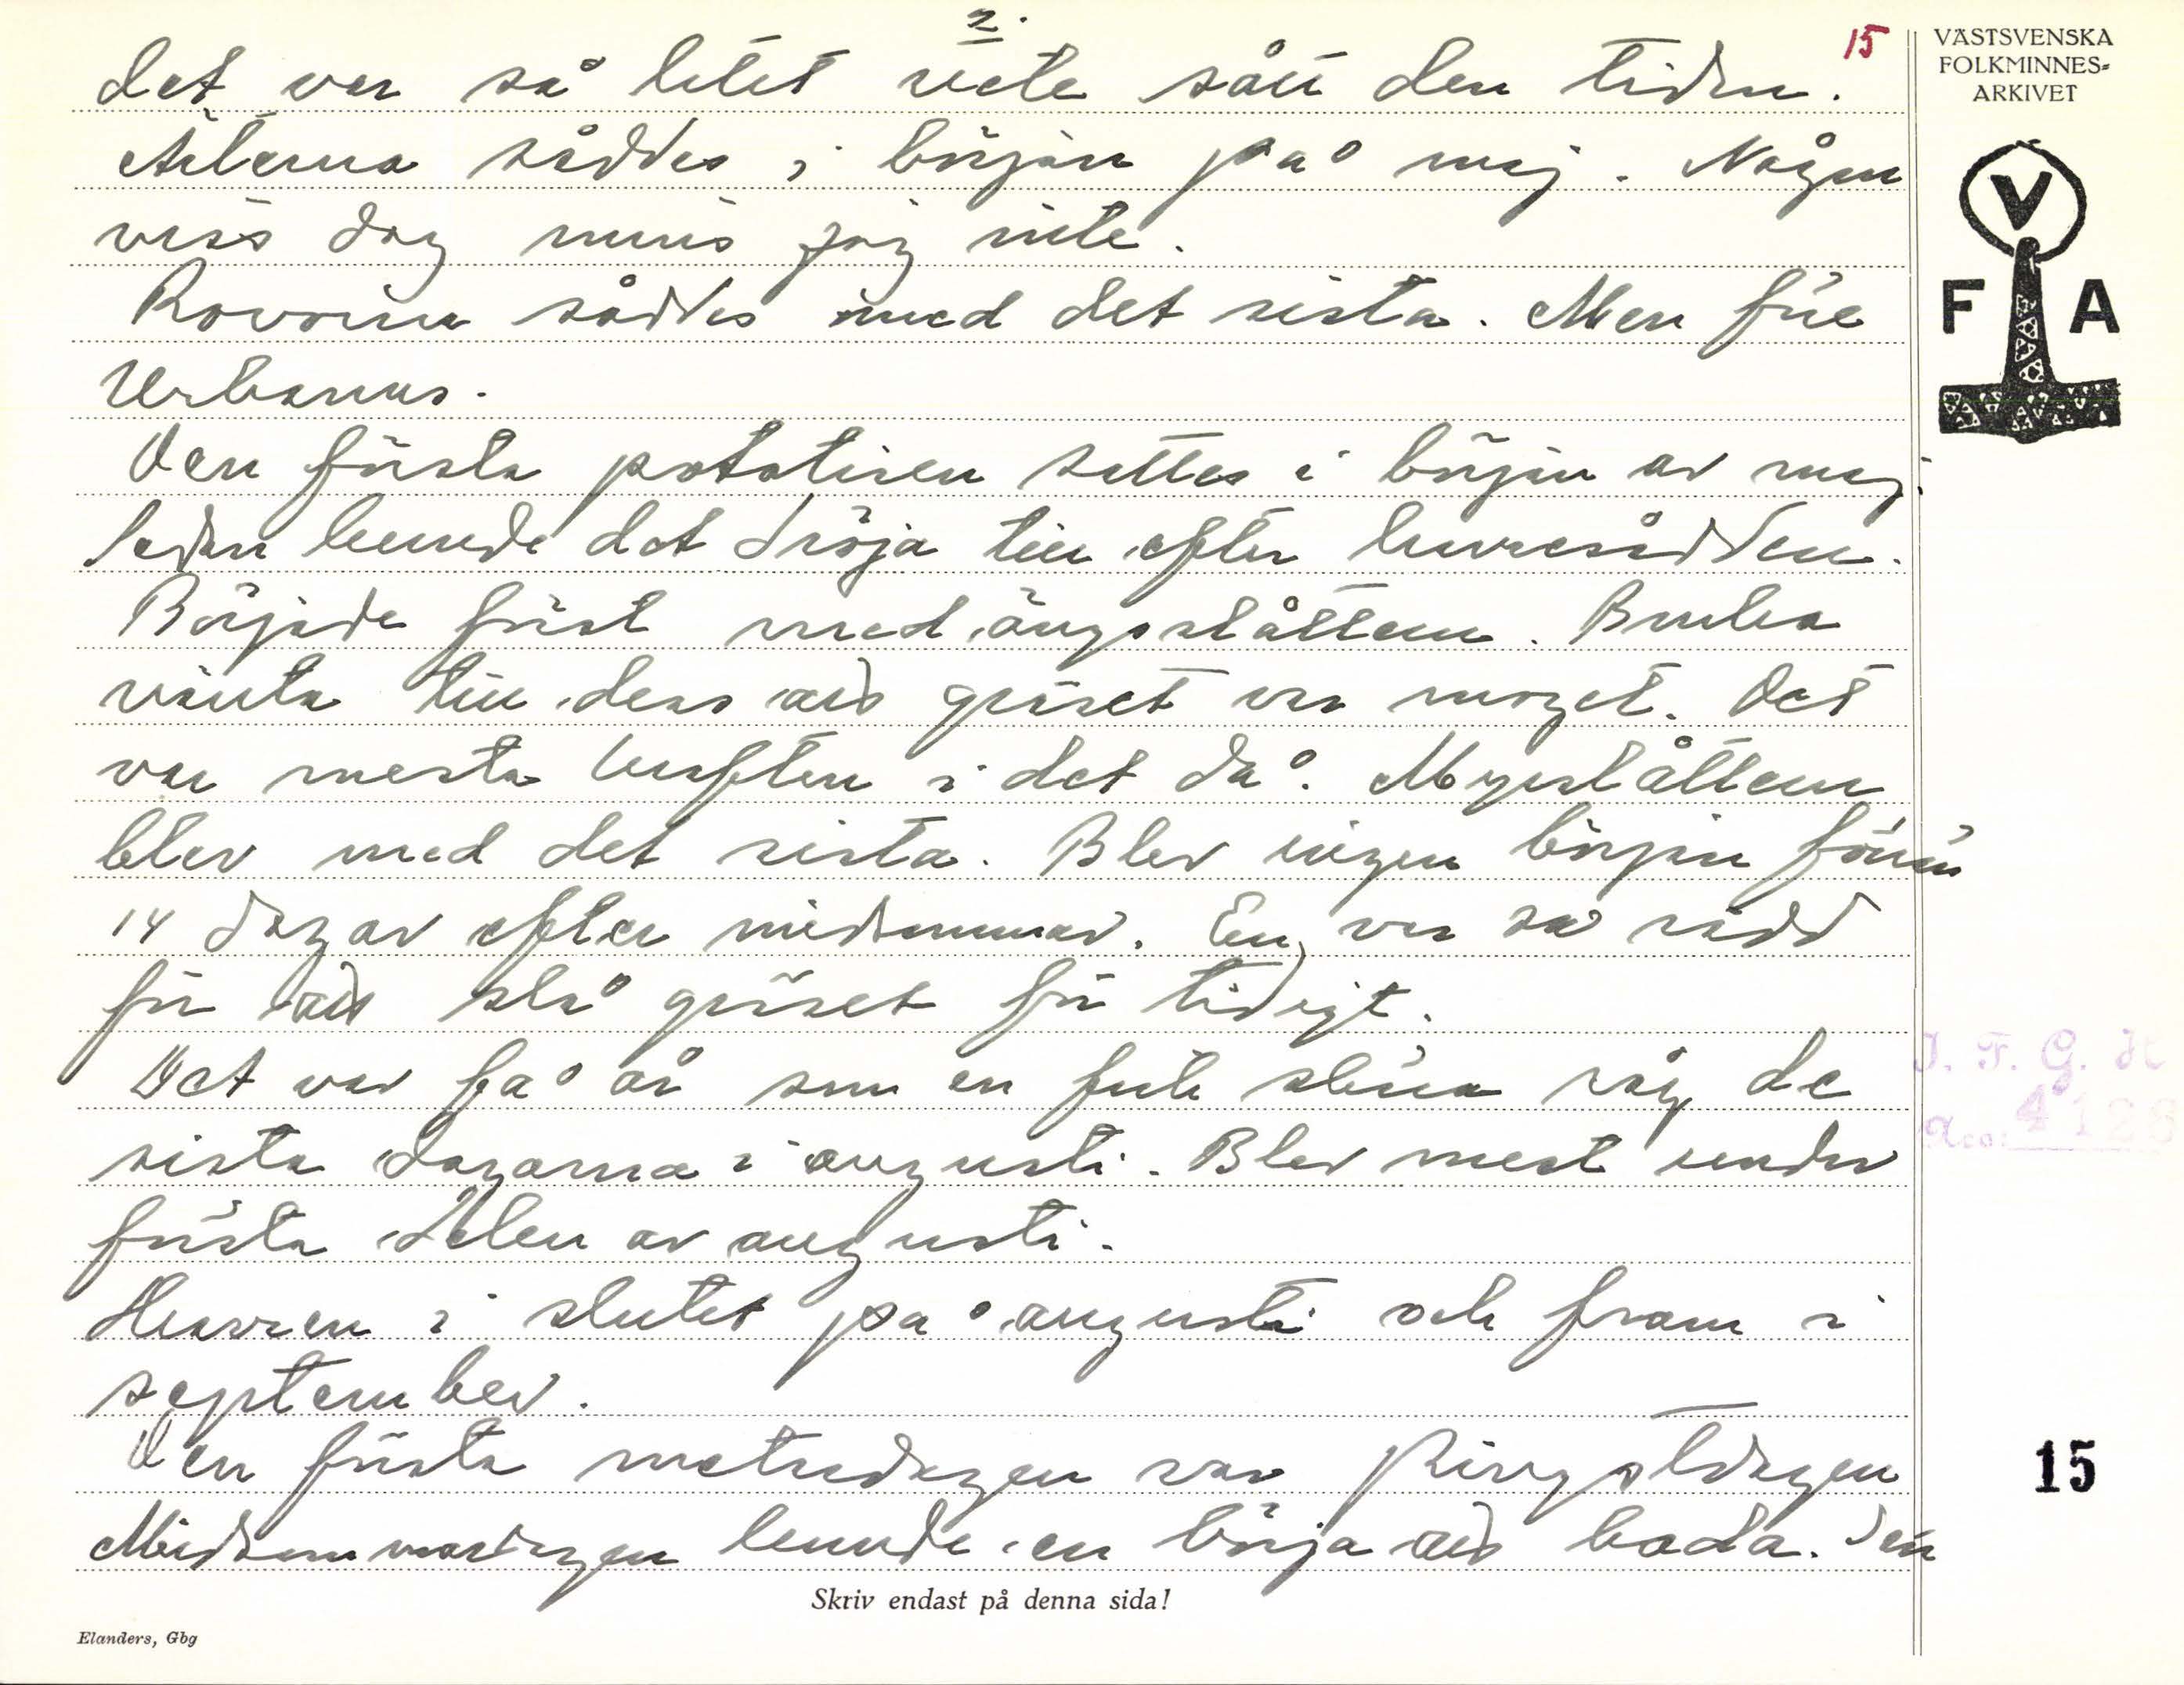 2.
15
det var så litet vete sått den tiden.
Ärterna såddes i början på maj. Någon
viss dag minns jag inte.
Rovorna såddes med det sista. Men före
Urbanus.
Den första potatisen sattes i början av maj.
Sedan kunde det dröja till efter kornsådden.
Började först med ängsslåttern. Bruka
vänta till dess att gräset var moget. Det
var mesta kraften i det då. Myrslåttern
blev med det sista. Blev ingen början förrän
14 dagar efter midsommar. En var så rädd
för att slå gräset för tidigt.
Det var få år som en fick skära råg de
sista dagarna i augusti. Blev mest under
första delen av augusti.
Havren i slutet på augusti och fram i
september.
Den första metedagen var Pingstdagen
Midsommardagen kunde en börja att bada. Den
VÄSTSVENSKA
FOLKMINNES=
ARKIVET
V
F A
I. F. G. H
Acc: 4128
15
Skriv endast på denna sida!
Elanders, Gbg